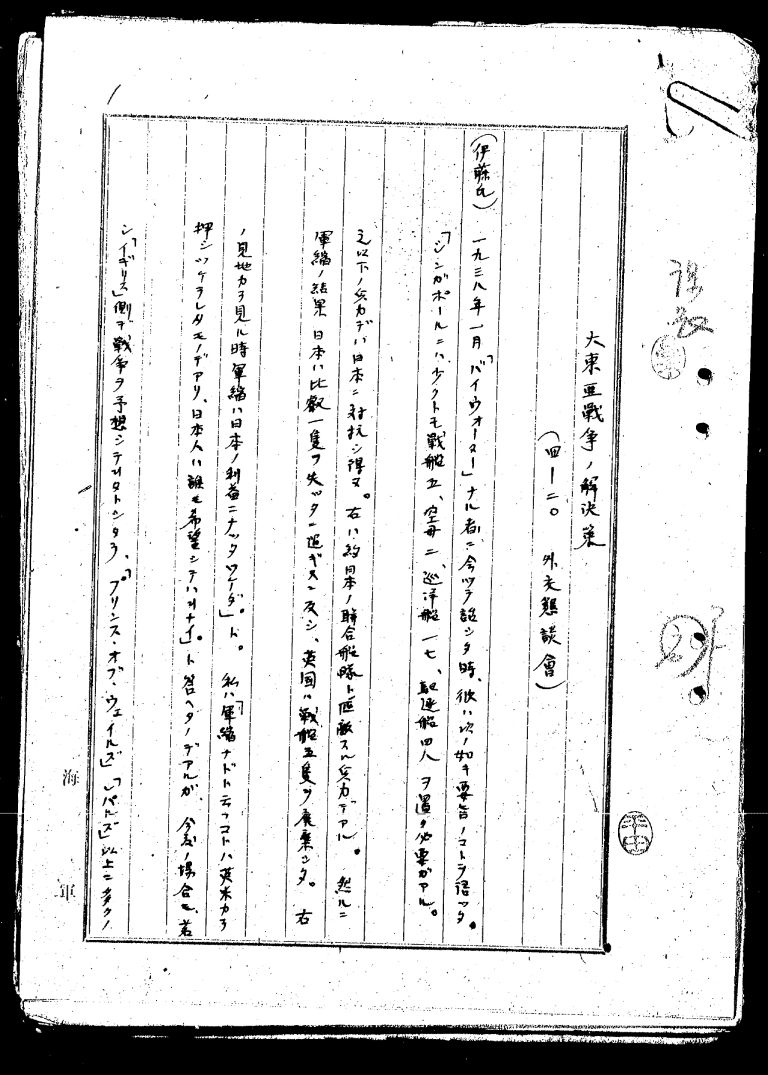 大東亜戦争ノ解決策
(四―二〇 外交懇談會)
(伊藤氏) 一九三八年一月「バイウォーター」ナル者ニ会ッテ話シタ時、彼ハ次ノ如キ要旨ノコトヲ語ッタ。
「シンガポールニハ少クトモ戦艦五、空母二、巡洋艦一七、駆逐艦四八ヲ置ク必要ガアル。
之以下ノ兵力デハ日本ニ対抗シ得ヌ。右ハ約日本ノ聯合艦隊ト匹敵スル兵力デアル。然ルニ
軍縮ノ結果日本ハ比叡一隻ヲ失ッタニ過ギヌニ反シ、英国ハ戦艦五隻ヲ廃棄シタ。右
ノ見地カラ見ル時軍縮ハ日本ノ利益ニナッタワケダ」ト。私ハ「軍縮ナドト云フコトハ英米カラ
押シツケラレタモノデアリ、日本人ハ誰モ希望シテハヰナイ」ト答ヘタノデアルガ、今度ノ場合モ、若
シ「イギリス」側デ戦争ヲ予想シテヰタトシタラ、「プリンス・オブ・ウェイルズ」「レパルズ」以上ニ多クノ
海軍
課長